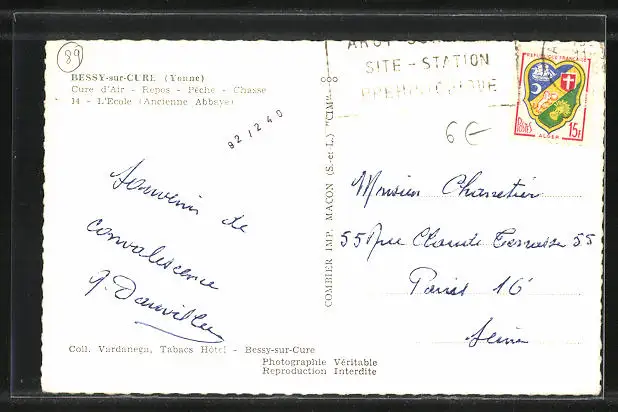 89
BESSY-sur-CURE (Yonne)
Cure d'Air - Repos - Pêche - Chasse
14 - L'Ecole (Ancienne Abbaye)
821240
Souvenir de
convalescence
Coll. Vardanega, Tabacs Hôtel - Bessy-sur-Cure
Photographie Véritable
Reproduction Interdite
COMBIER IMP. MACON (S.-et-L.) "CIM"
SITE - STATION
PREHISTORIQUE
REPUBLIQUE FRANÇAISE
POSTES
15F
ALGER
6€
Monsieur Charretier
55 Rue Claude Terrasse 55
Paris 16
Seine